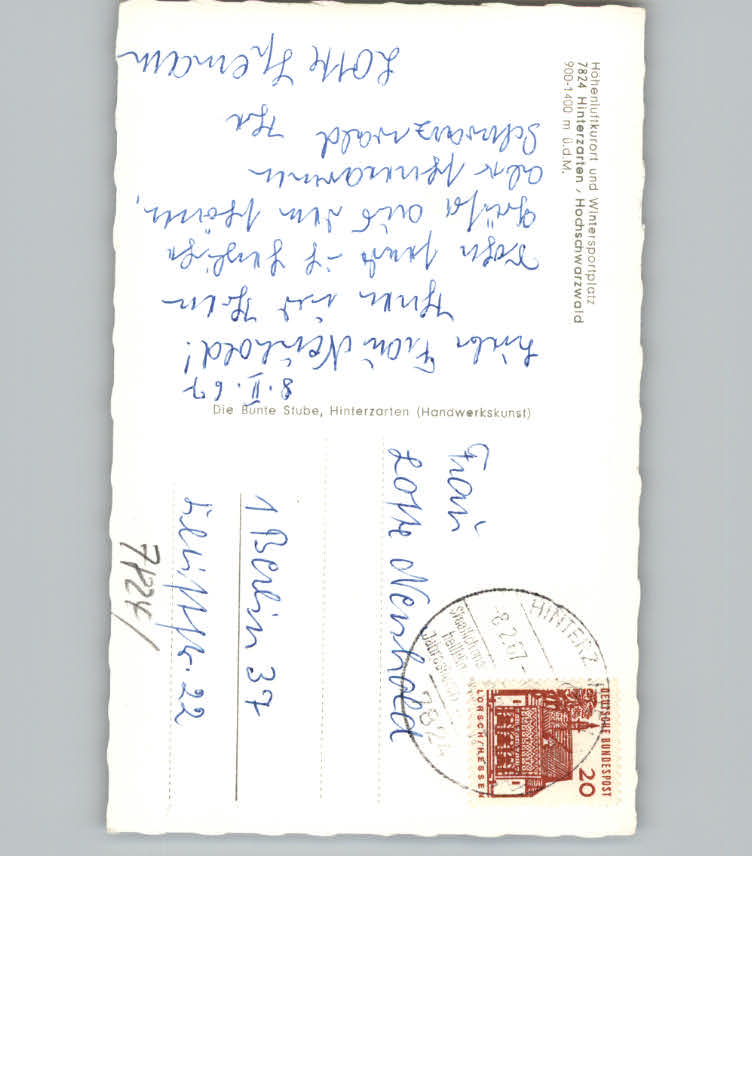 Höhenluftkurort und Wintersportplatz
7824 Hinterzarten / Hochschwarzwald
900-1400 m ü.d.M.
8. II. 67
Liebe Frau Neinhold!
Ihnen und Ihrem
sende ich herzliche
Grüße aus dem schönen,
aber
Schwarzwald Ihre
Lotte
Die Bunte Stube, Hinterzarten (Handwerkskunst)
Frau
Lotte Neinhold
1 Berlin 37
22
7824/
HINTERZ
-8.2.67
7824
DEUTSCHE BUNDESPOST
20
LORSCH/HESSEN